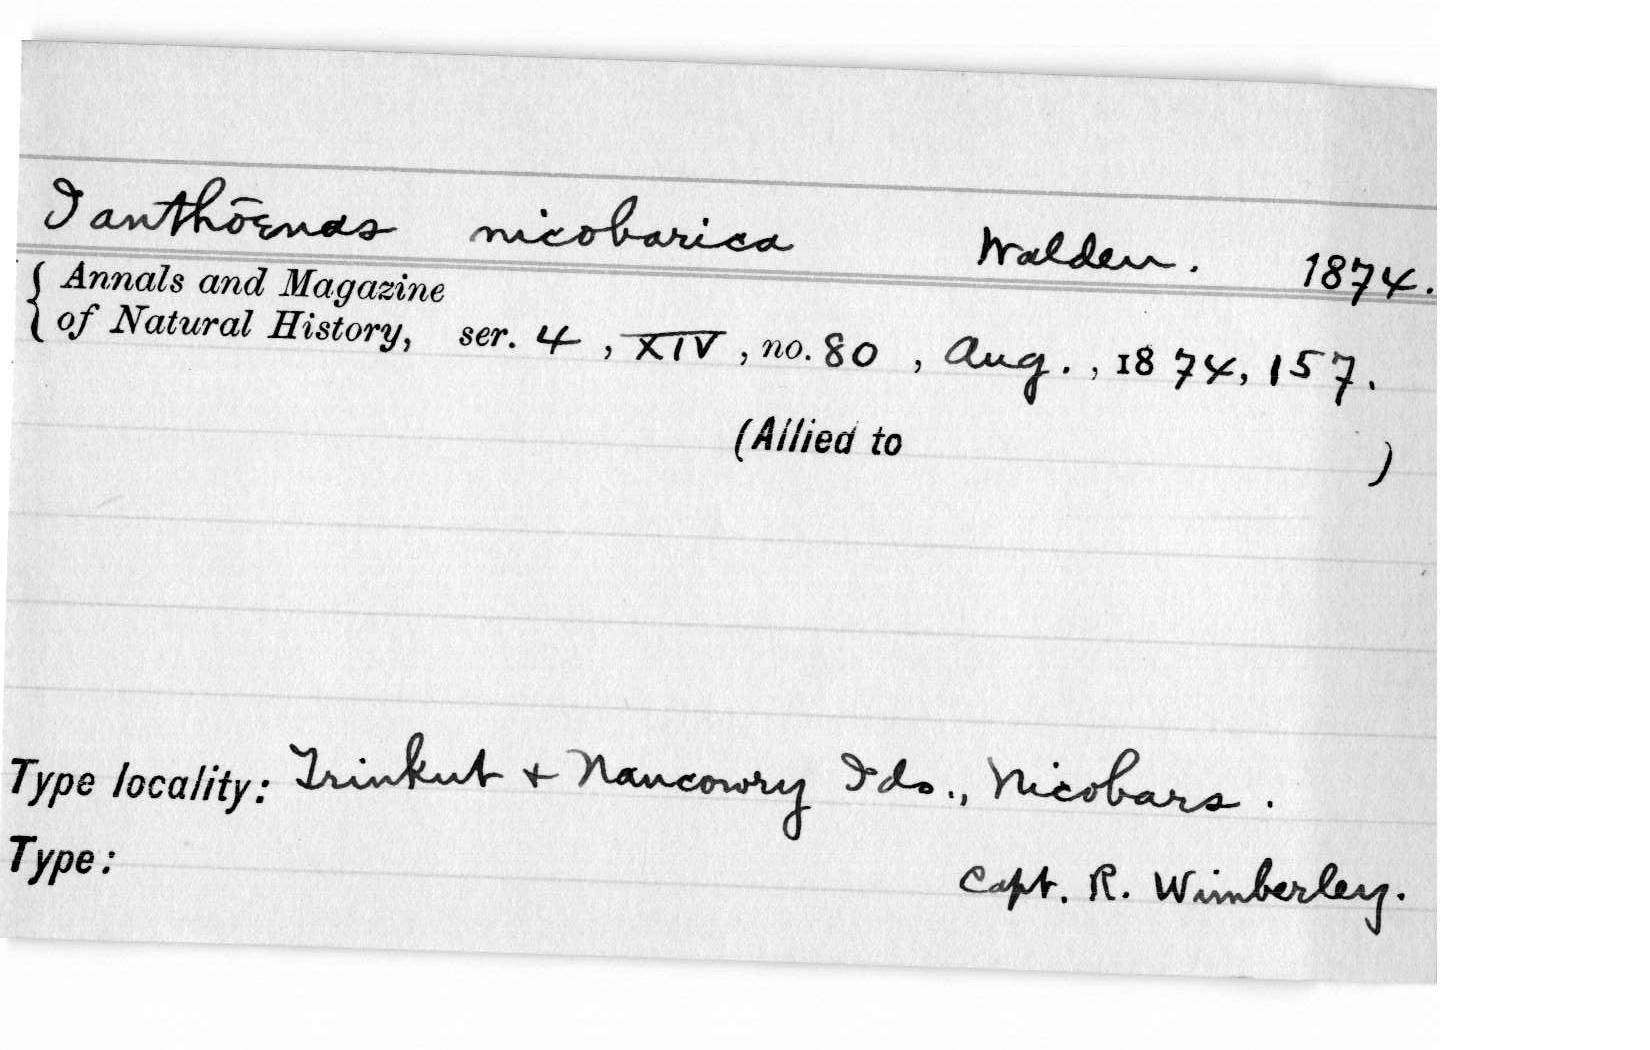 Ianthœnas nicobarica Walden. 1874.
{ Annals and Magazine
of Natural History, ser. 4, XIV, no. 80, Aug., 1874, 157.
(Allied to )
Type locality: Trinkut + Nancowry Ids., Nicobars.
Type: Capt. R. Wimberley.